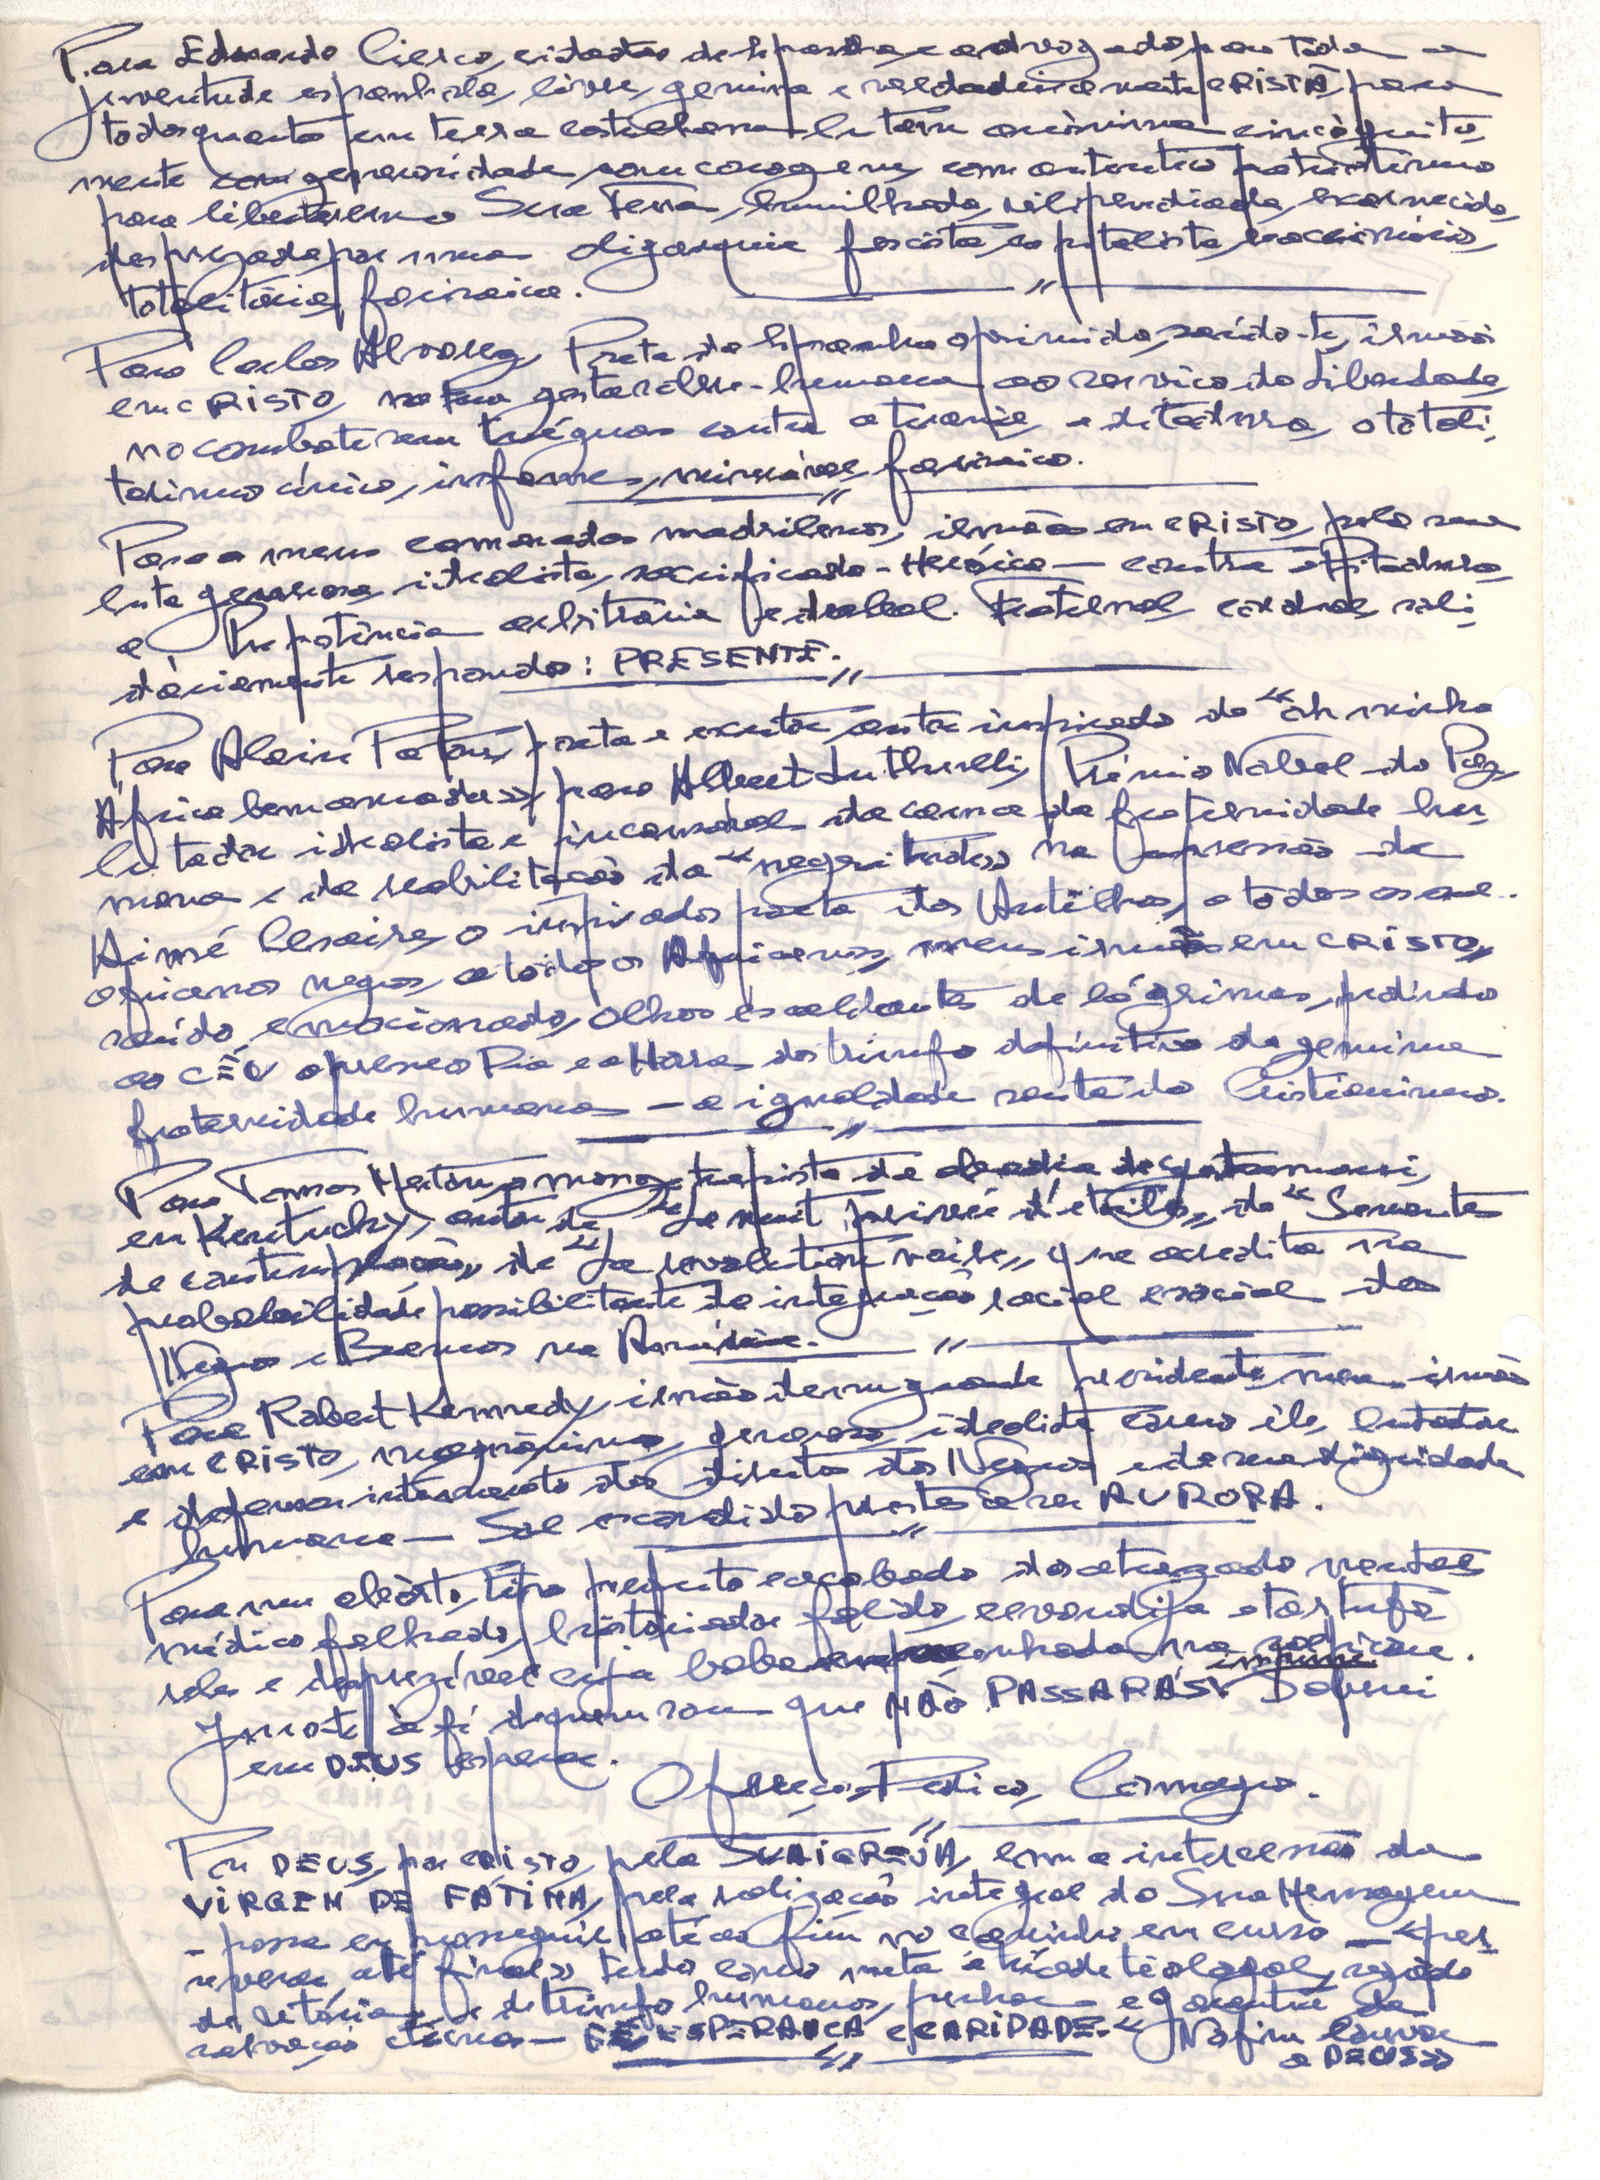 Para Eduardo Cierco, cidadão de Espanha e advogado, para toda a
juventude espanhola, livre, genuina e verdadeiramente CRISTÃ, para
todos quantos em terra castelhana lutam anónima e incógnita
mente com generosidade, com coragem, com autentico patriotismo
para libertarem a Sua Terra, humilhada, vilipendiada, escarnecida,
desprezada por uma oligarquia fascista, capitalista, reaccionária,
totalitária, farisaica.
Para Carlos Alvarez, Poeta da Espanha oprimida, saúdo-te, irmão
em CRISTO, na tua gesta - humana ao serviço da Liberdade,
no combate sem tréguas contra a tirania, a ditadura, o totali,
tarismo cínico, infame, miserável, farisaico.
Para os meus camaradas madrilenos, irmãos em CRISTO, pela sua
luta generosa, idealista, sacrificada - Heróica - contra a Ditadura,
a Prepotência arbitrária e . Fraternal, cordial, soli,
dàriamente respondo: PRESENTE.
Para Alain Paton, poeta e escritor, autor inspirado do "Oh minha
África bem amada", para Albert Luthuli, Prémio Nobel da Paz,
lutador idealista e incansável da causa da fraternidade hu,
mana e da reabilitação da "negritude", na expressão de
Aimé Césaire, o inspirado poeta das Antilhas, a todos os
africanos negros, a todos os Africanos, meus irmãos em CRISTO,
saúdo, emocionado, olhos escaldantes de lágrimas, pedindo
ao CÉU apresse o Dia e a Hora do triunfo definitivo da genuina
fraternidade humana - a igualdade santa do Cristianismo.
Para Tomas Merton, o monge trapista da abadia de Getsemani,
em Kentucky, autor de "La nuit privée d'étoiles", de "Sementes
de contemplação", de "La revolution noire", que acredita na
probabilidade possibilitante da integração racial e social dos
Negros e Brancos na América.
Para Robert Kennedy, irmão de um grande presidente, meu irmão
em CRISTO, magnânimo, generoso, idealista como ele, lutador
e defensor intemerato dos direitos dos Negros e da sua dignidade
humana - Sol escondido prestes a ser AURORA.
Para um abôrto, tipo perfeito e acabado do atrasado mental
médico falhado, historiador falido, covardija e tartufo
reles e desprezível cuja baba na .
Juro-te à fé de quem sou que NÃO PASSARÁS! impune Dolurei
em DEUS esperar.
Ofereço, Dedico, Consagro.
Por DEUS, por CRISTO, pela SUA IGREJA, com a intercessão da
VIRGEM DE FÁTIMA, pela realização integral da Sua Mensagem
- possa eu prosseguir até ao fim no caminho em curso - "per
severar até final" tendo como meta a tríade teologal, razão
da vitória e de triunfo humano, penhor e garantia da
salvação eterna - FÉ, ESPERANÇA e CARIDADE. "No fim louvor
a DEUS"